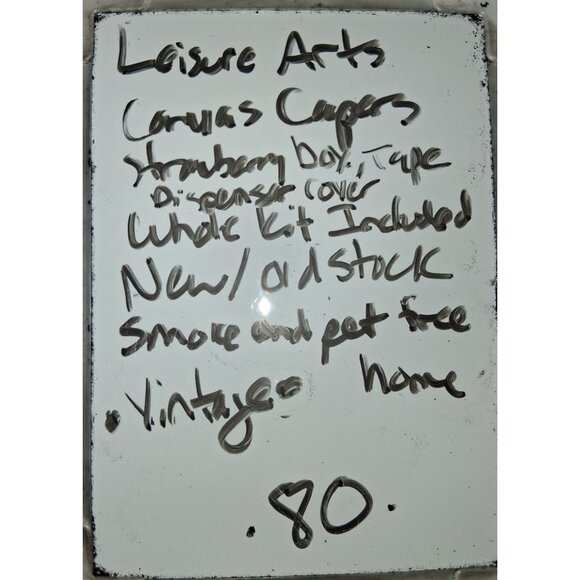 Leisure Arts
Canvas Capers
Strawberry Box, Tape
Dispenser Cover
Whole Kit Included
New/old stock
Smoke and pet free
home
•Vintage•
.80.